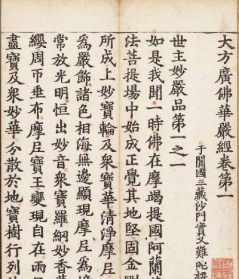 大方廣佛華嚴經卷第一
于闐國三藏沙門實叉難陀
世主妙嚴品第一之一
如是我聞一時佛在摩竭提國阿蘭
法菩提場中始成正覺其地堅固金剛
所成上妙寶輪及眾寶華清淨摩尼
為嚴飾諸色相海無邊顯現摩尼為
常放光明恒出妙音眾寶羅網妙香
纓周帀垂布摩尼寶王變現自在雨
盡寶及眾妙華分散於地寶樹行列